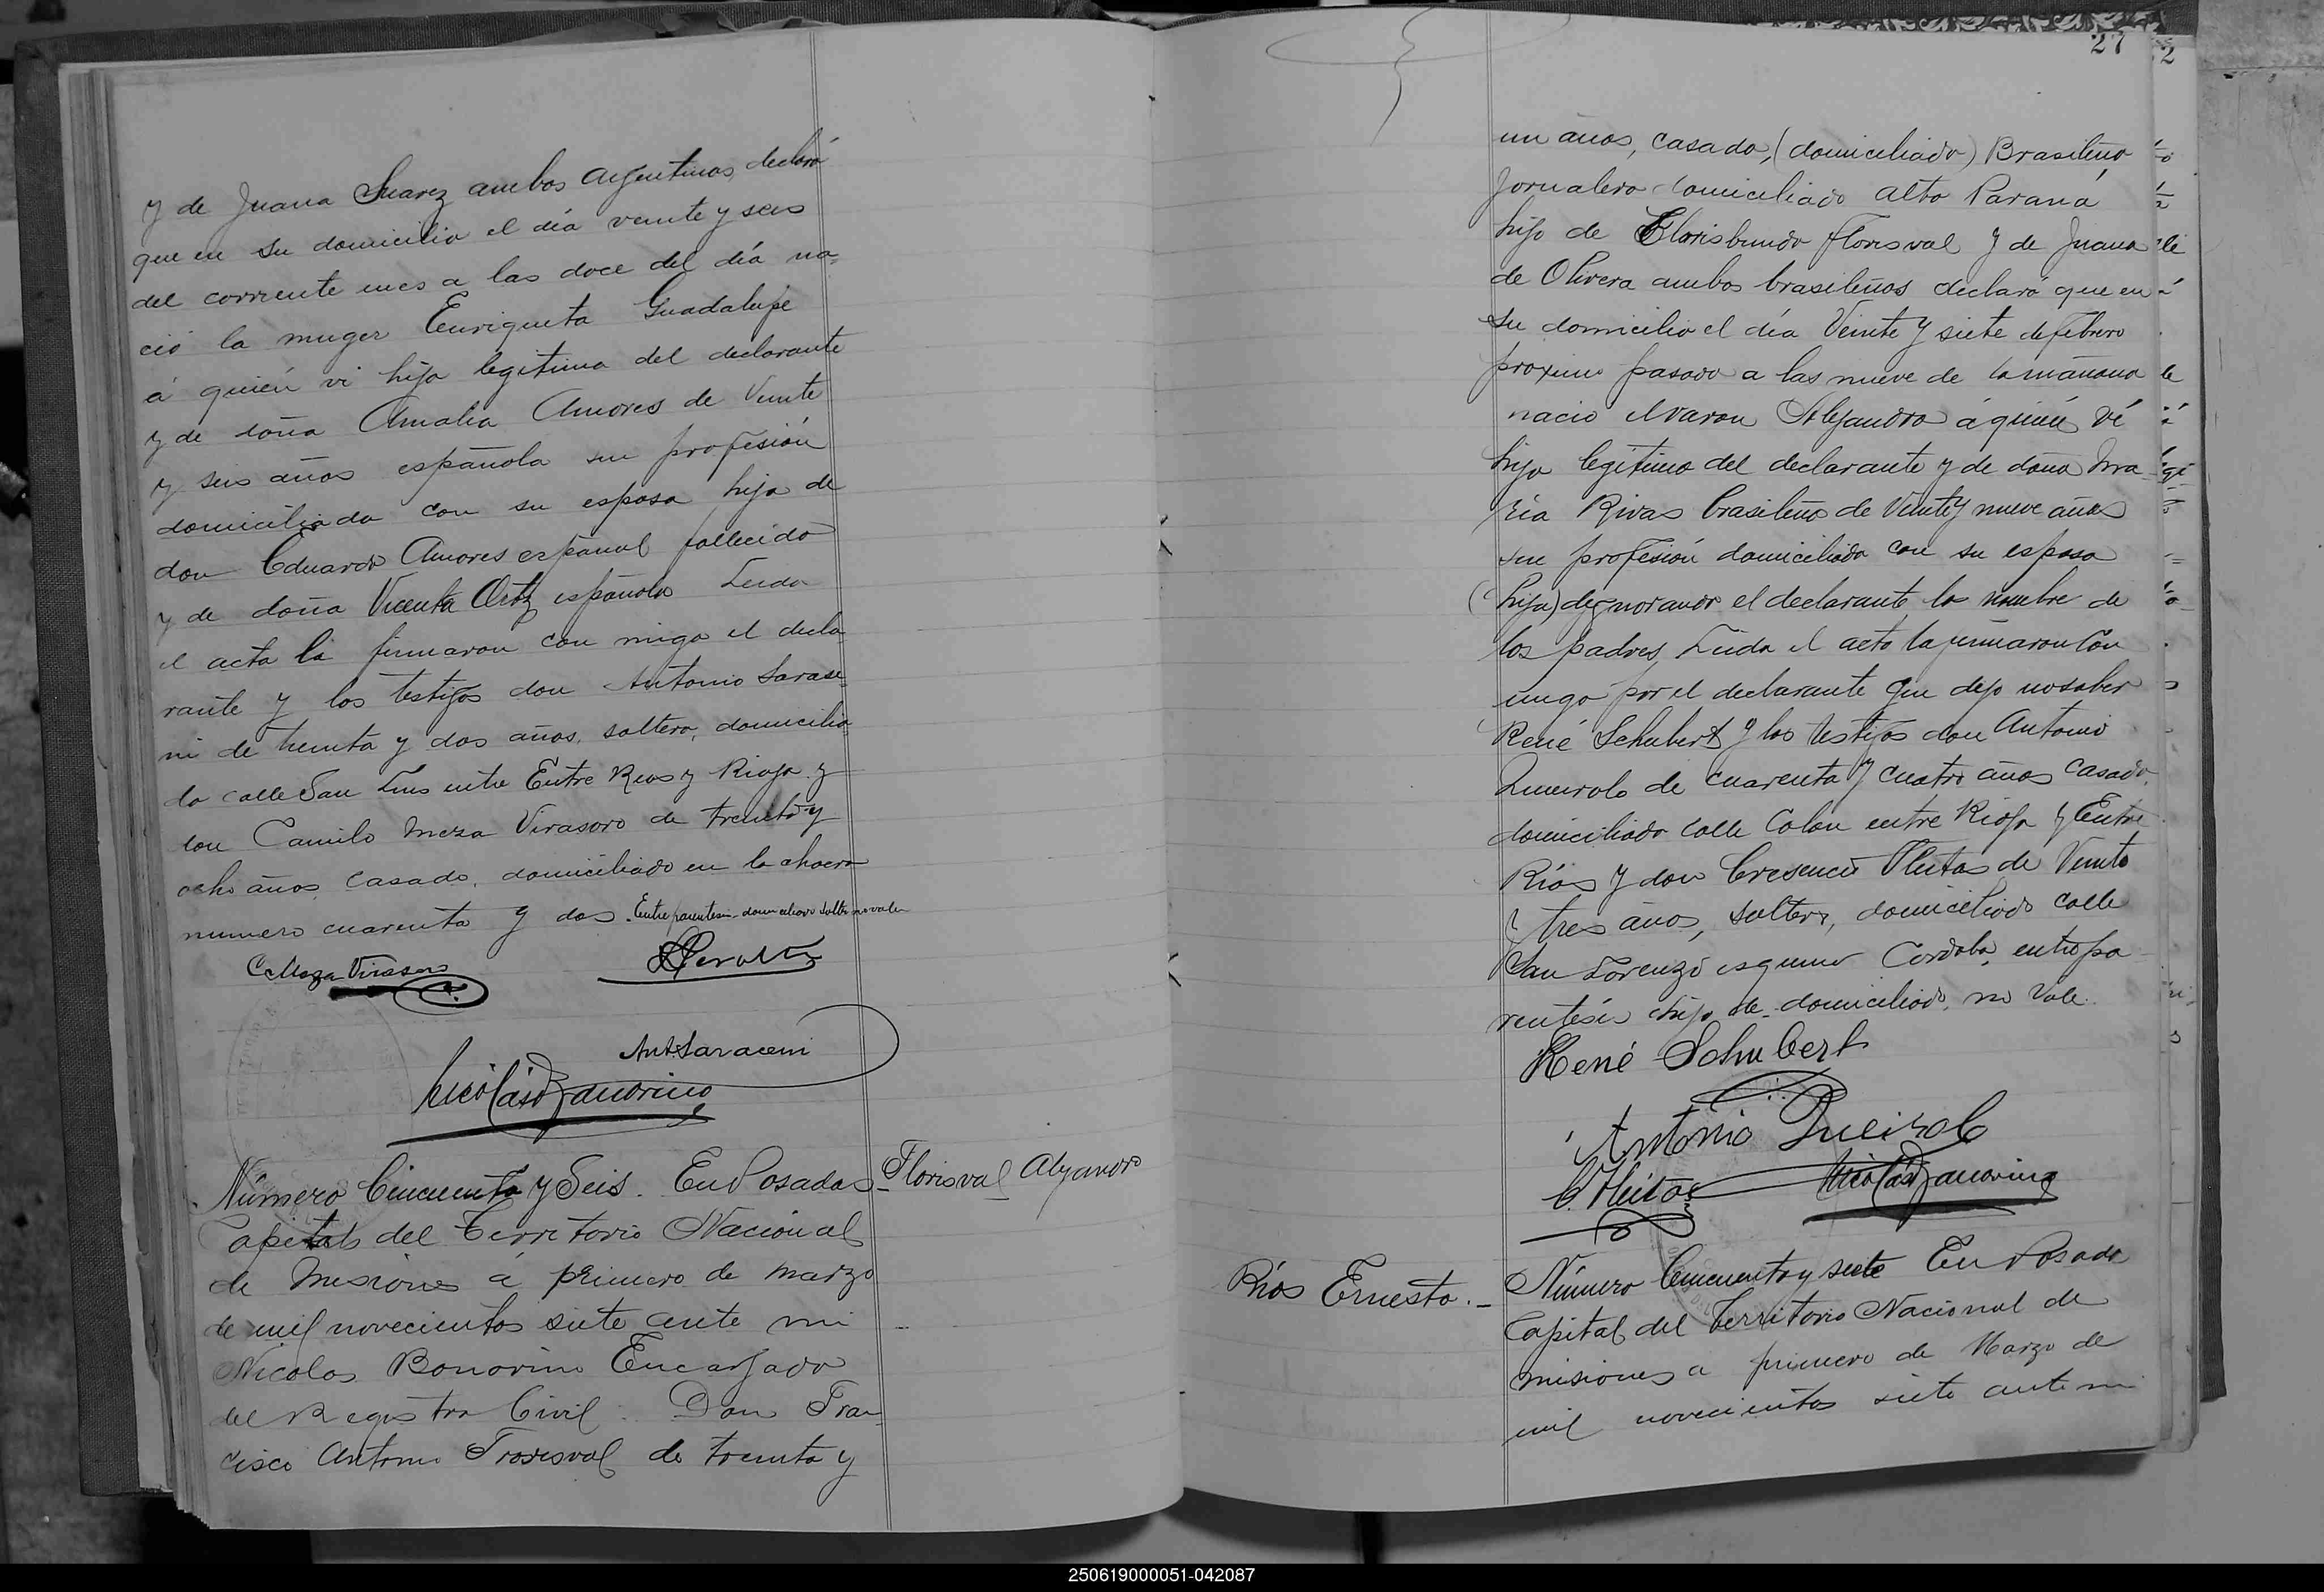 y de Juana Suarez ambos argentinos, declaró
que en su domicilio el día veinte y seis
del corriente mes a las doce del día na=
ció la muger Enriqueta Guadalupe
á quién vi hija legitima del declarante
y de doña Amalia Amores de Veinte
y seis años española sin profesión
domiciliada con su esposo hija de
don Eduardo Amores español fallecido
y de doña Vicenta Ortiz española Leida
el acta la firmaron con migo el decla
rante y los testigos don Antonio Sarase=
ni de treinta y dos años, soltero, domicilia
do calle San Luis entre Entre Rios y Rioja y
don Camilo Meza Virasoro de treinta y
ocho años, casado, domiciliado en la chacra
numero cuarenta y dos. Entre parentesis - domiciliado soltero no vale
C Meza Virasoro
Ant. Saraceni
Nicolás Bonorino
Número Cincuenta y Seis. En Posadas
Florisval Alejandro
Capital del Territorio Nacional
de Misiones á primero de marzo
de mil novecientos siete ante mi
Nicolas Bonorino Encargado
del Registro Civil. Don Fran
cisco Antonio Florisval de treinta y
27
2
un años, casado, (domiciliado) Brasileño,
Jornalero domiciliado Alto Paraná,
hijo de Florisbundo Florisval y de Juana
de Olivera ambos brasileños declaró que en
su domicilio el día Veinte y siete de febrero
proximo pasado a las nueve de la mañana
nació el varon Alejandro á quién ví
hijo legitimo del declarante y de doña Ma
ria Rivas brasileña de Veinte y nueve años
sin profesión domiciliada con su esposo
(hija) de ignorando el declarante los nombre de
los padres, Leida el acta la firmaron con
migo por el declarante que dijo no saber
René Schubert y los testigos don Antonio
Queirolo de cuarenta y cuatro años casado,
domiciliado calle Colón entre Rioja y Entre
Ríos y don Cresencio Fleitas de Veinte
y tres años, soltero, domiciliado calle
San Lorenzo esquina Cordoba, entre pa
rentésis hijo de - domiciliado, no Vale.
René Schubert
Antonio Queirolo
C. Fleitas
Nicolás Bonorino
Ríos Ernesto.-
Número Cincuenta y siete En Posadas
Capital del Territorio Nacional de
misiones a primero de Marzo de
mil novecientos siete ante mi
250619000051-042087